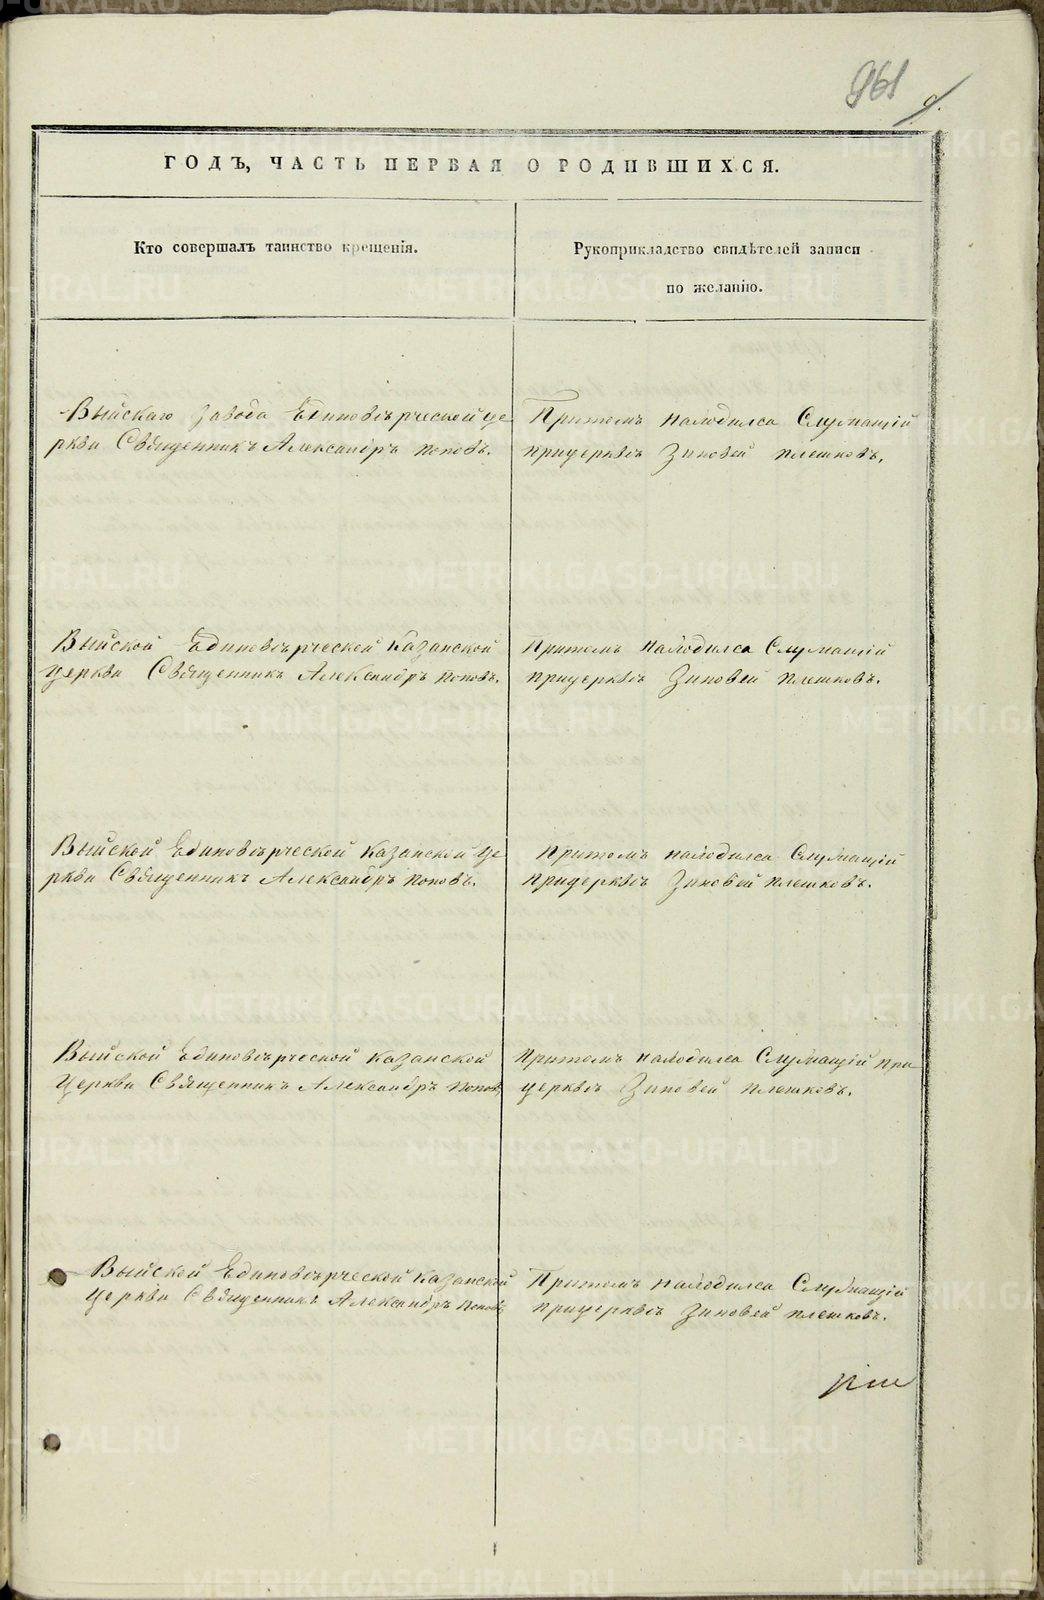 961
ГОДЪ, ЧАСТЬ ПЕРВАЯ О РОДИВШИХСЯ.
Кто совершалъ таинство крещенія.
Рукоприкладство свидѣтелей записи
по желанію.
Выйскаго завода Единовѣрческой це
ркви Священникъ Александръ поповъ.
Притомъ находился Служащій
прицерквѣ Зиновей плешковъ.
Выйской Единовѣрческой Казанской
церкви Священникъ Александръ поповъ.
притомъ находился Служащій
прицерквѣ Зиновей плешковъ.
Выйской Единовѣрческой казанской це
ркви Священникъ Александръ поповъ.
притомъ находился Служащій
прицерквѣ Зиновей плешковъ.
Выйской Единовѣрческой казанской
церкви Священникъ Александръ поповъ
притомъ находился Служащій при
церквѣ Зиновей плешковъ.
Выйской Единовѣрческой казанской
церкви Священникъ Александръ поповъ
Притомъ находился Служащій
прицерквѣ Зиновей плешковъ.
METRIKI.GASO-URAL.RU